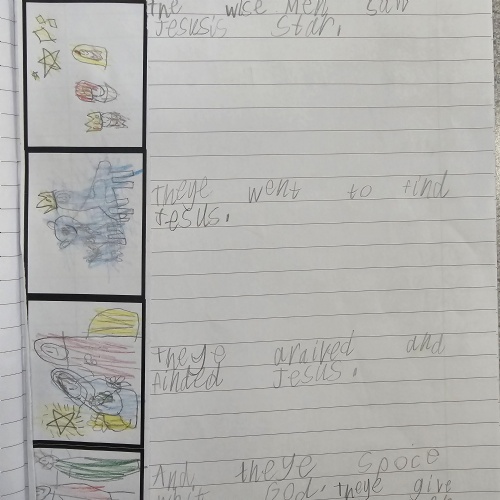 the wise Men saw
Jesusis star.
theye went to find
Jesus.
theye araived and
finded Jesus.
And theye spoce
whit God. theye give